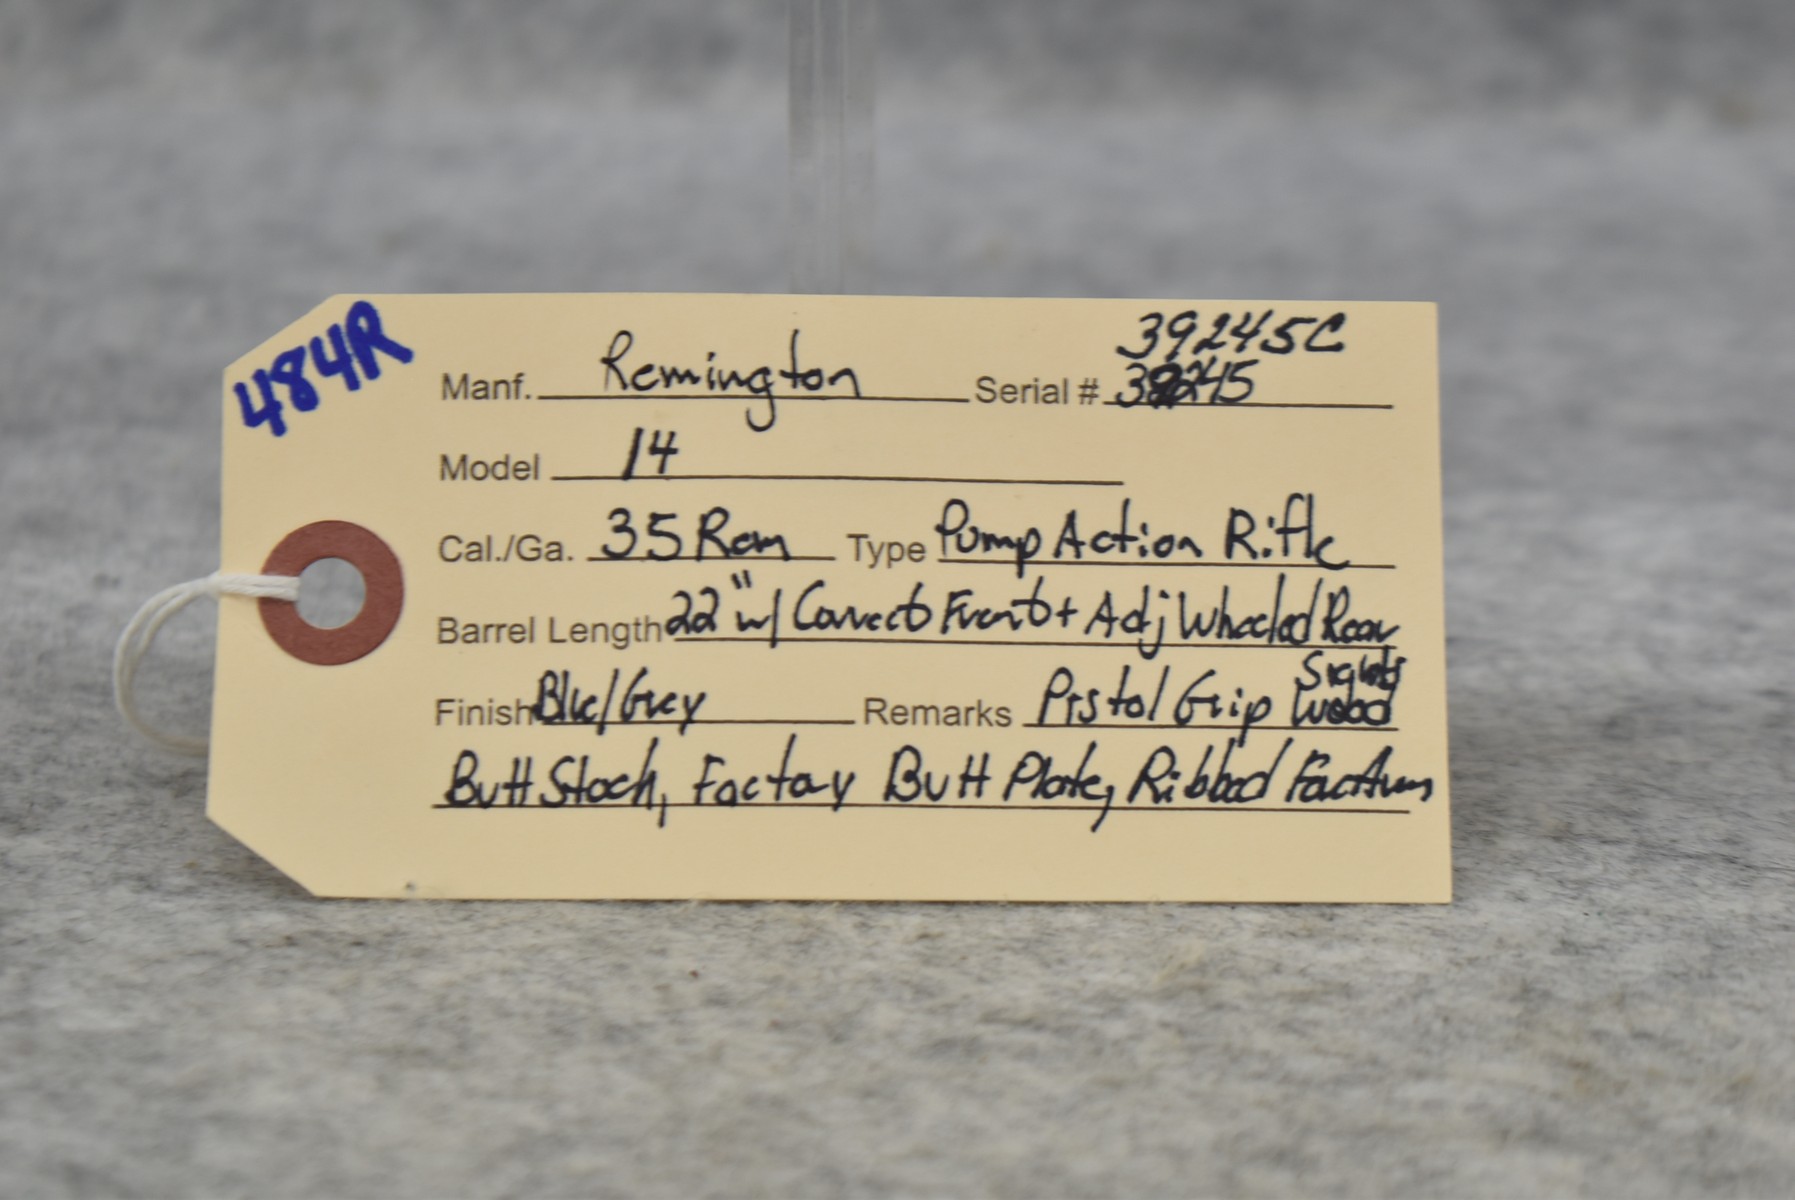 484R
39245C
Manf. Remington Serial # 39245
Model 14
Cal./Ga. 35 Rem Type Pump Action Rifle
Barrel Length 22" w/ Correct Front + Adj Wheeled Rear
Sights
Finish Blue/Grey Remarks Pistol Grip Wood
Butt Stock, Factory Butt Plate, Ribbed